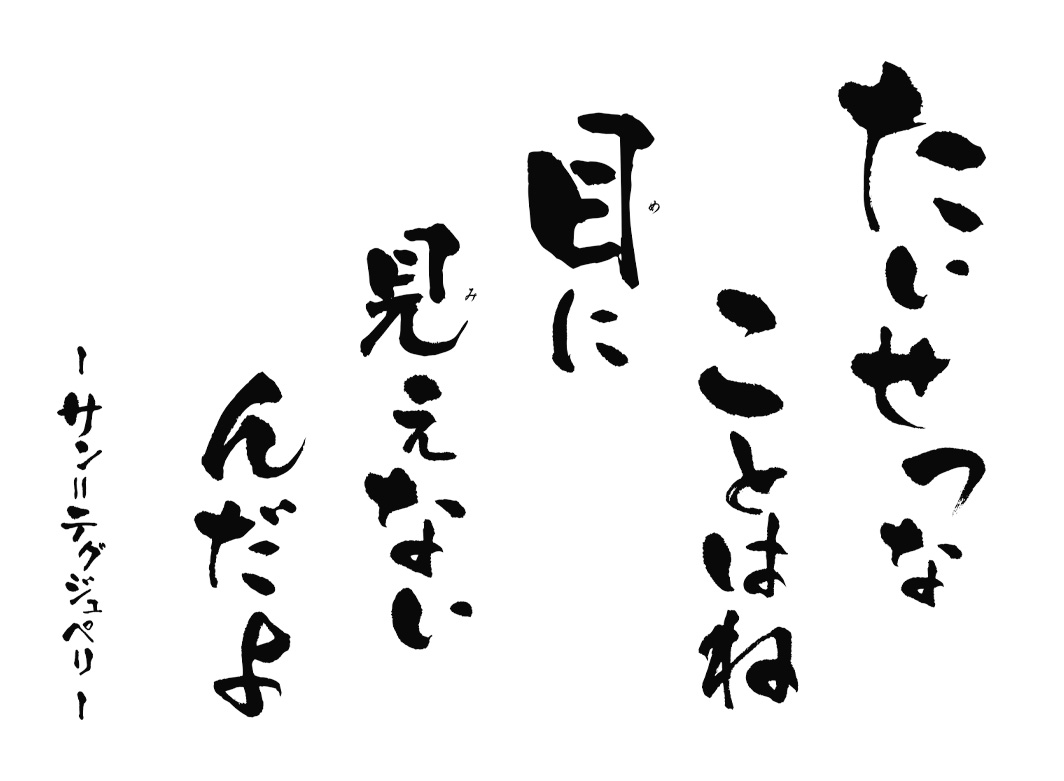 たいせつな
ことはね
目に
め
見えない
み
んだよ
ーサン＝テグジュペリー